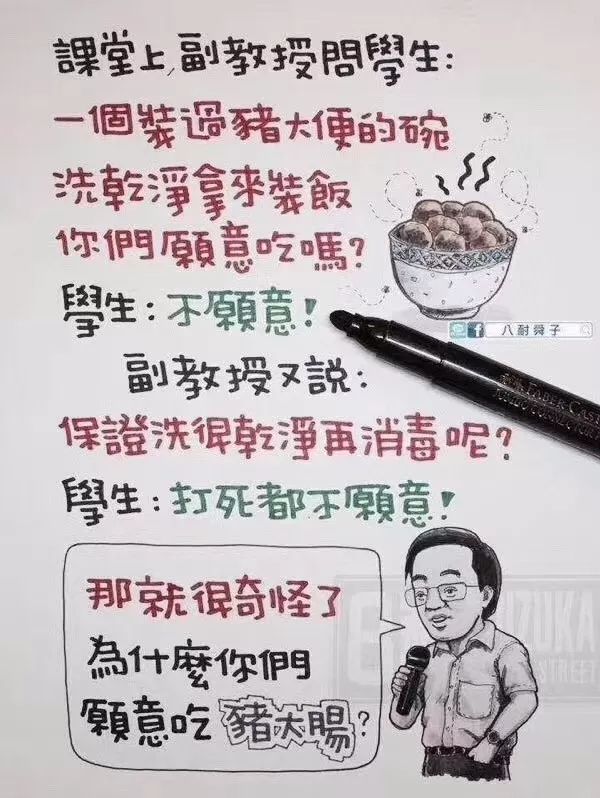 課堂上,副教授問學生:
一個裝過豬大便的碗
洗乾淨拿來裝飯
你們願意吃嗎?
學生:不願意!
八耐舜子
副教授又說:
保證洗得乾淨再消毒呢?
學生:打死都不願意!
那就很奇怪了
為什麼你們
願意吃豬大腸?
FABER-CAST
STREET